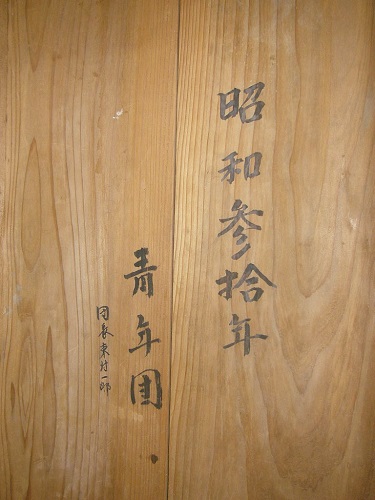 昭和参拾年
青年団
団長東村一郎